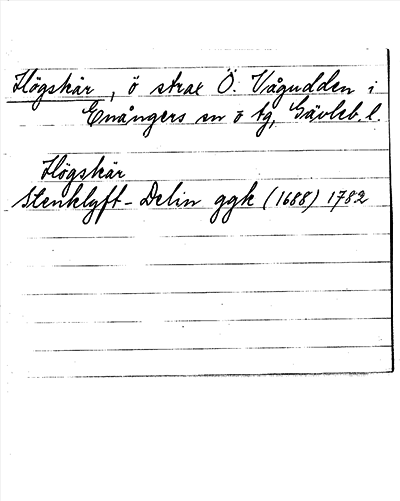 Högskär, ö strax Ö. Vågudden i
Enångers sn o tg, Gävleb. l.
Högskär
Stenklyft-Delin ggk (1688) 1782